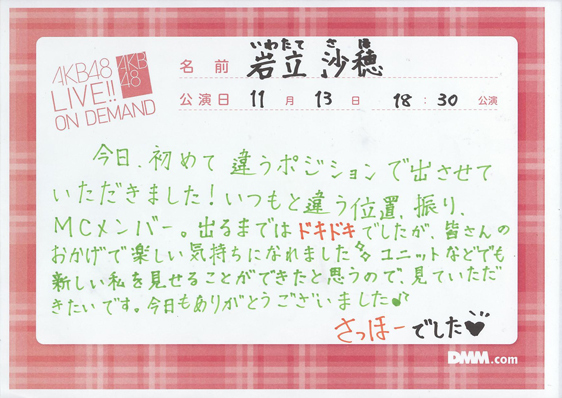 AKB48
LIVE!!
ON DEMAND
AKB
48
いわたて さほ
名前 岩立 沙穂
公演日 11月 13日 18:30 公演
今日、初めて違うポジションで出させて
いただきました!いつもと違う位置、振り、
MCメンバー。出るまではドキドキでしたが、皆さんの
おかげで楽しい気持ちになれました ユニットなどでも
新しい私を見せることができたと思うので、見ていただ
きたいです。今日もありがとうございました♪
さっほーでした♥
DMM.com